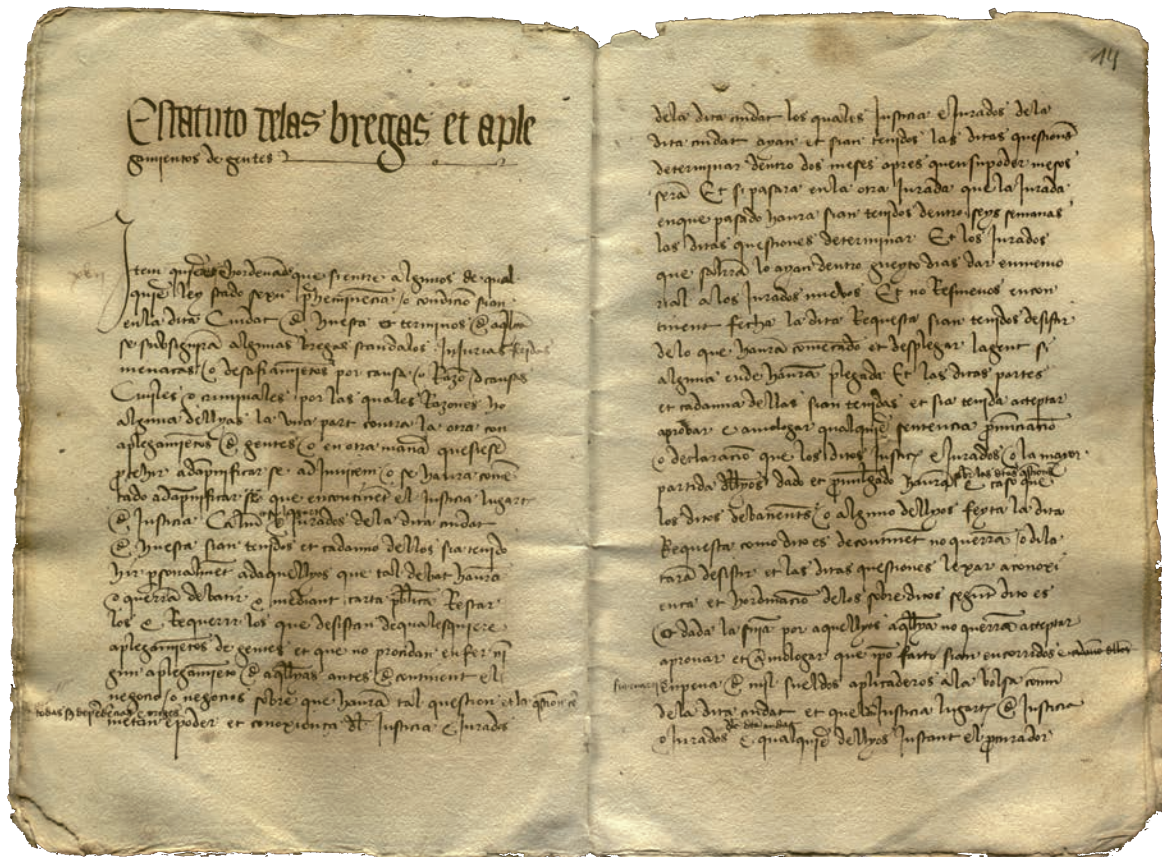 Estatuto delas bregas et aple
gamientos de gentes
Item quisieron e hordenado que si entre algunos de qual
quiere ley stado sexu preheminencia o condicio sian
en la dita Ciudat de Huesta et terminos de aquella
se subsiguiran algunas bregas scandalos Injurias feridas
menacas o desafiamientos por causa o Razo o causas
Ciuiles o criminales por las quales Razones no
alguna dellyas la vna part contra la otra con
aplegamientos de gentes o en otra manera quesiesen
adampnificar se adinuicem o se haura comen
tado adampnificar se que encontinet el Justicia lugart
de Justicia Jurados de la dita ciudat
de Huesta sian tenidos et cadauno dellos sia tenido
hir personalment adaquellyos que tal debat hauran
o querran debatir o mediant carta publica Restar
los o Requerir los que desistan de qualesquiere
aplegamientos de gentes et que no procidan en fer nin
gun aplegamiento de aquellyas antes de continent el
negocio o negocios sobre que hauran tal question
metan e poder et conoxiença del Justicia e Jurados
14
dela dita ciudat los quales Justicia e Jurados de la
dita ciudat ayan et sian tenidos las ditas questions
determinar dentro dos meses apres que en su poder mesos
seran Et si pasara en la otra Jurada que la Jurada
en que pasado haura sian tenidos dentro seys semanas
las ditas questiones determinar Et los Jurados
que saldran lo ayan dentro gueyto dias dar en memo
rial a los Jurados nueuos Et no Resmenos encon
tinent fecha la dita Requesta sian tenidos desistir
de lo que hauran comecado et desplegar la gent si
alguna ende hauran plegada Et las ditas partes
et cadauna dellas sian tenidas et sia tenida acceptar
aprobar e amologar qualquiere sentencia pronunciacio
o declaracio que los ditos Justicia e Jurados o la mayor
partida dellyos dado et promulgado hauran e caso que
los ditos debatients o alguno dellyos feyta la dita
Requesta como dito es decontinet no querran o dila
taran desistir et las ditas questiones lexar a conoxi
enca et hordinacio de los sobreditos segun dito es
Et dada la sentencia por aquellyos aquellya no querran acceptar
aprouar et emologar que ipso facto sian encorridos
en pena de mil sueldos aplicaderos a la bolsa comun
de la dita ciudat et que el Justicia lugart de Justicia
o Jurados e qualquiere dellyos Instant el procurador